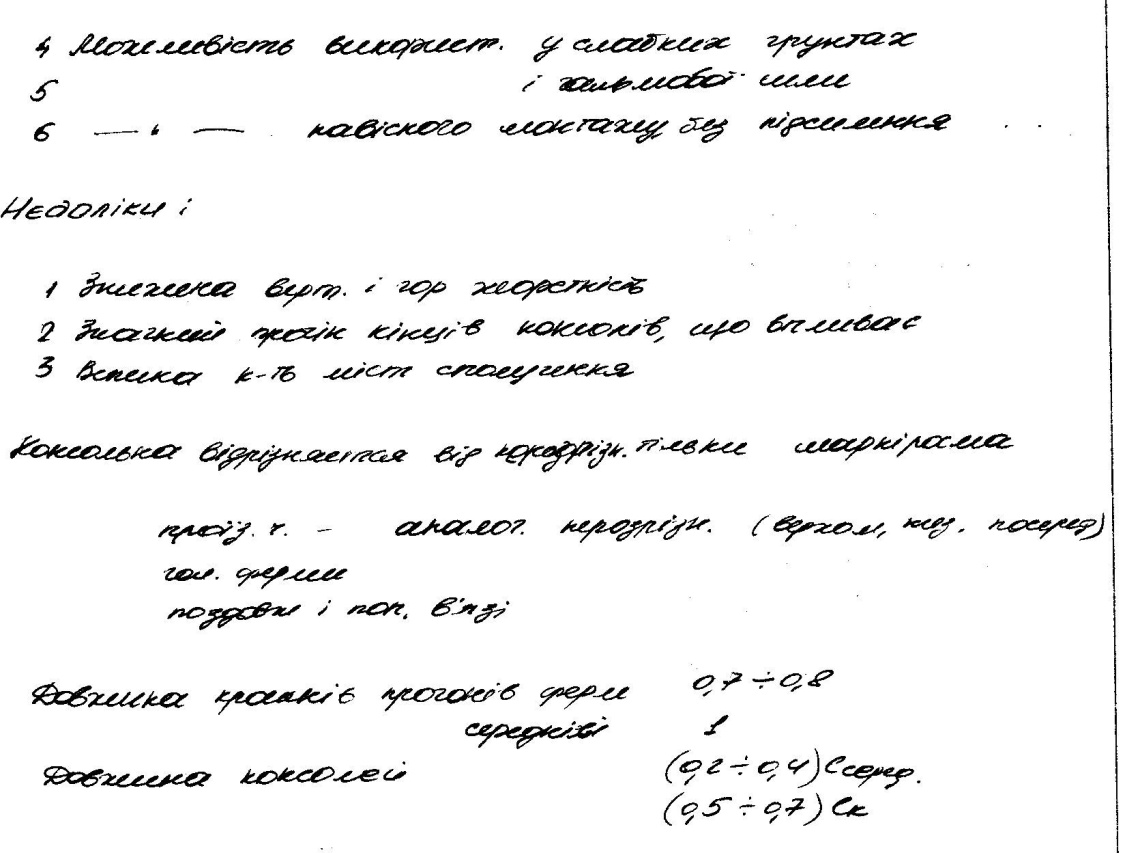 4 Можливість використ. у слабких грунтах
5 і гальмової сили
6 —— " —— навісного монтажу, без підсилення . .
Недоліки і
1 Знижена верт. і гор жорсткість
2 Значний прогін кінців консолів, що впливає
3 Велика к-ть міст сполучення
Консольна відрізняється від нерозрізн. тільки
проїз. ч. – аналог. нерозрізн. (верхом, низ, посеред)
гол. ферми
поздовж і поп. в'язі
Довжина крайнів прогонів ферм 0,7÷0,8
середніві 1
Довжина консолей (0,2÷0,4)lсеред.
(0,5÷0,7)lк